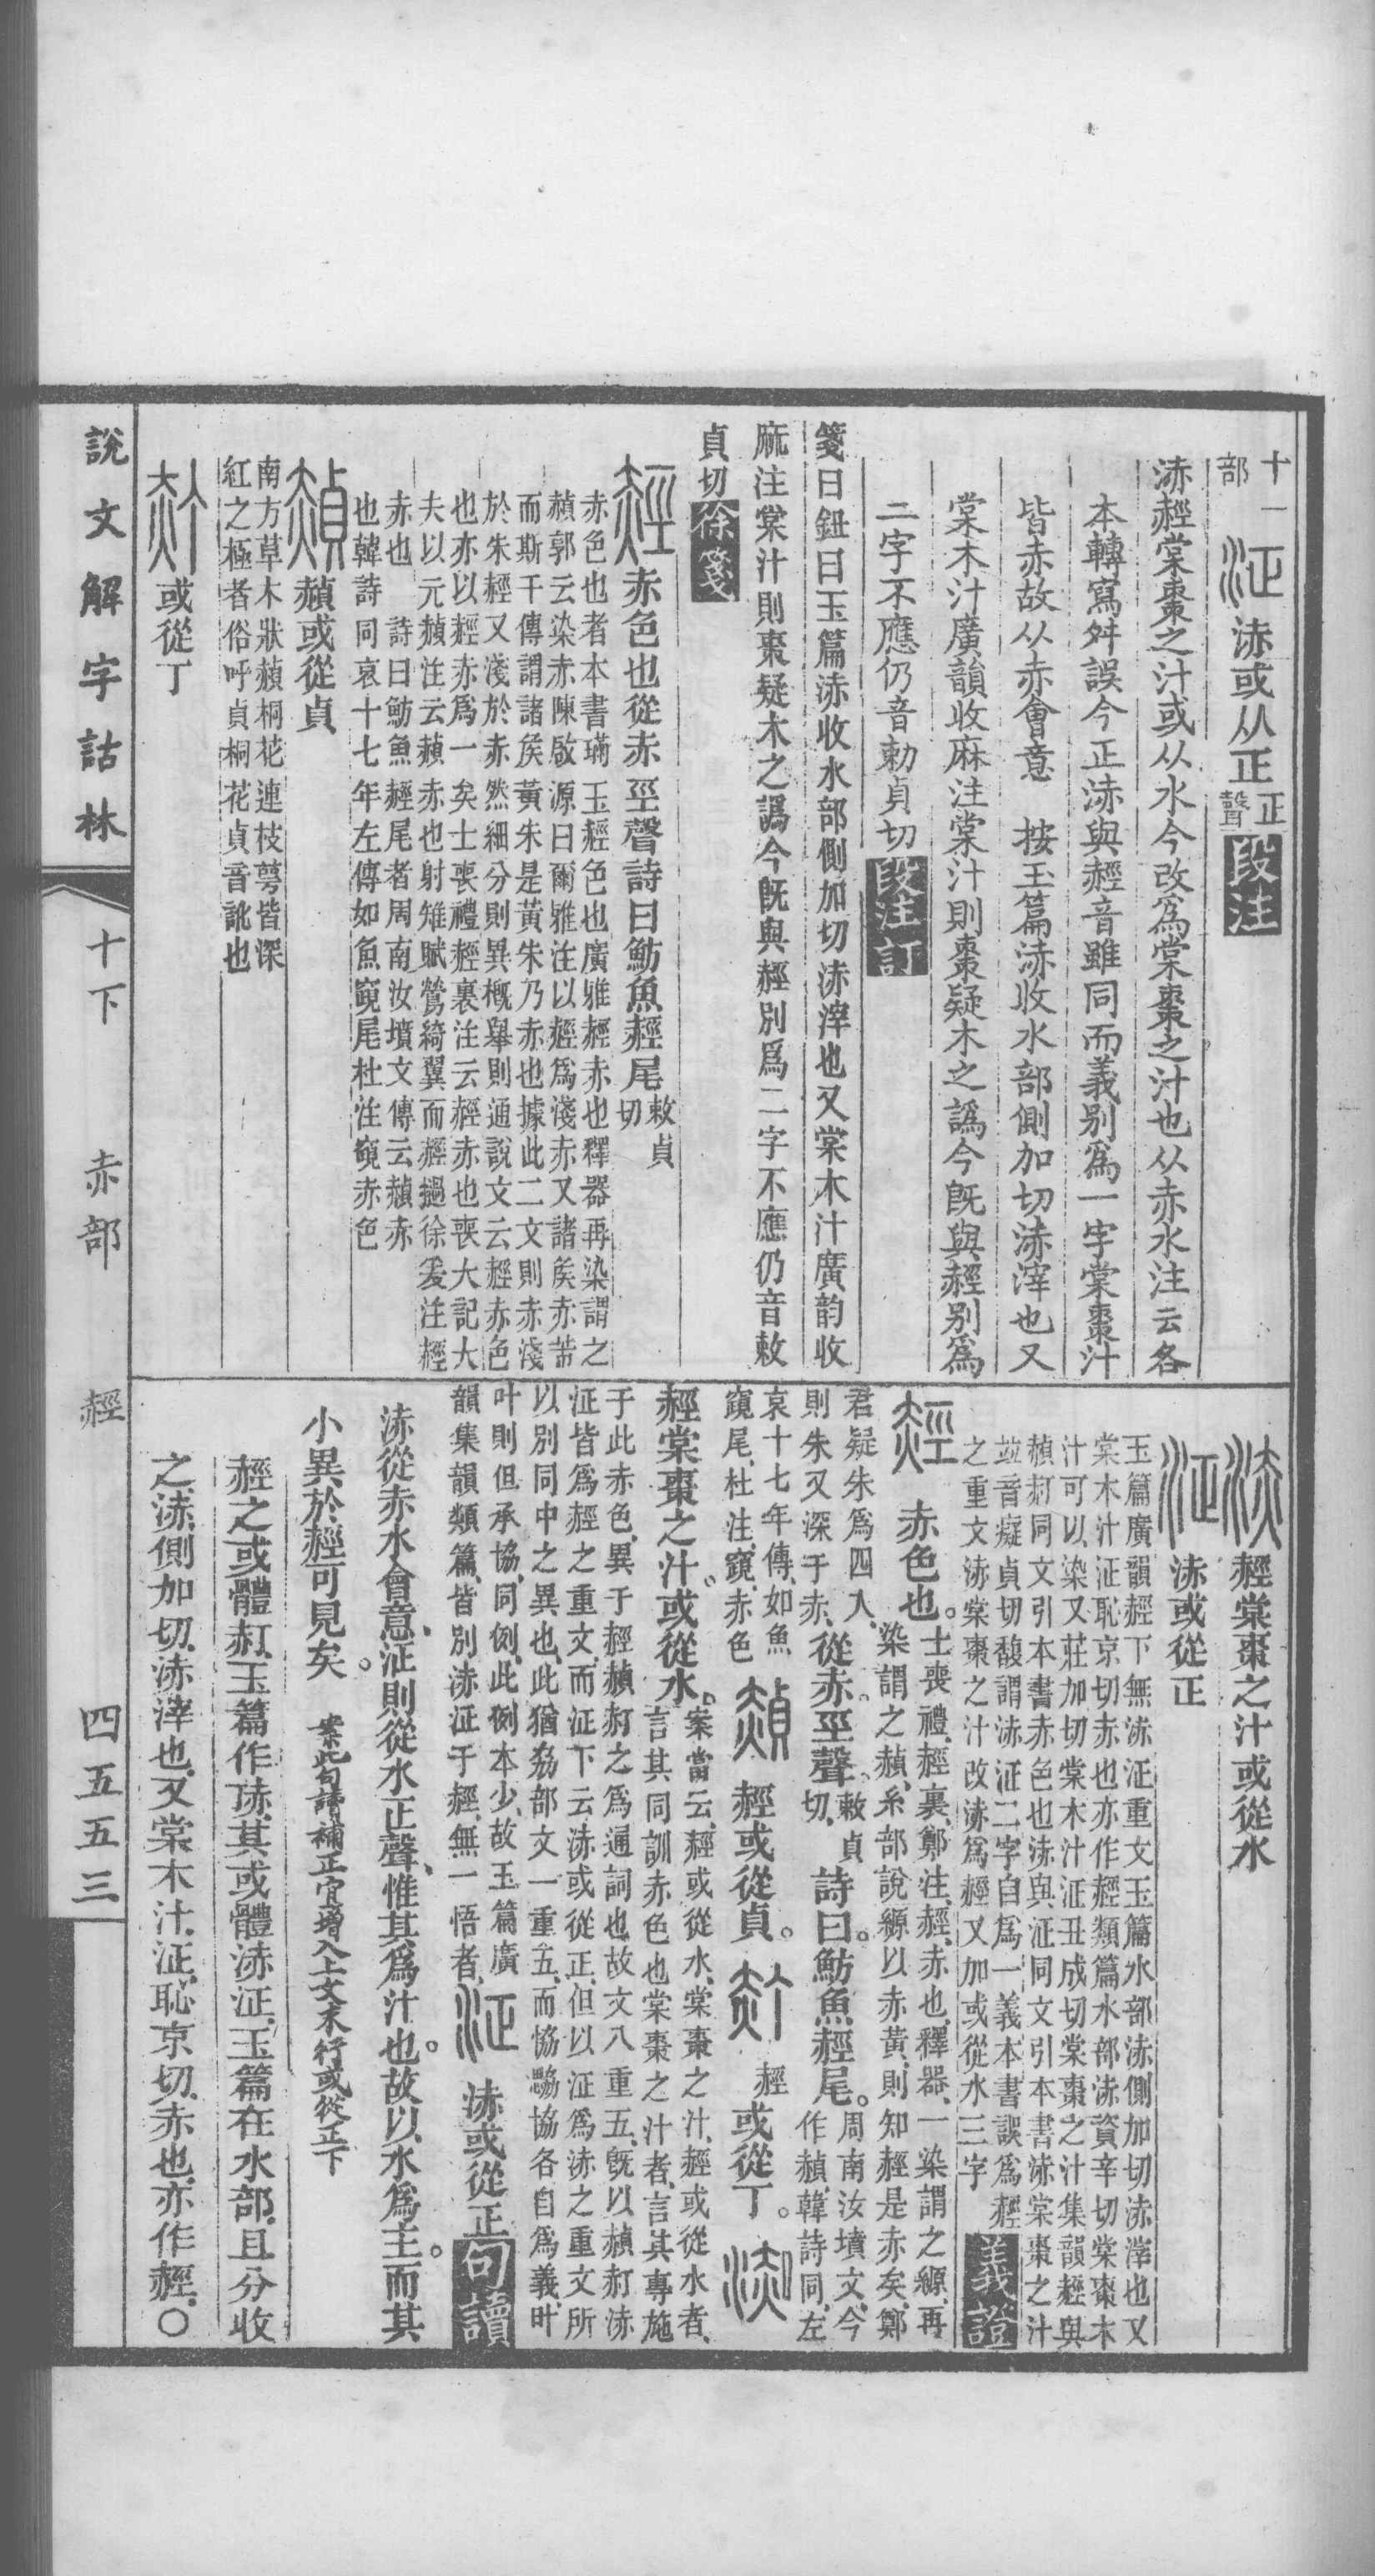 十一部
泟 浾或从正正聲段注
浾䞓棠棗之汁或从水今改爲棠棗之汁也从赤水注云各
本轉寫舛誤今正浾與䞓音雖同而義別爲一字棠棗汁
皆赤故从赤會意 按玉篇浾收水部側加切浾滓也又
棠木汁廣韻收麻注棠汁則棗疑木之譌今既與䞓別爲
二字不應仍音勅貞切段注訂
箋曰鈕曰玉篇浾收水部側加切浾滓也又棠木汁廣韵收
麻注棠汁則棗疑木之譌今既與䞓別爲二字不應仍音敕
貞切徐箋
䞓 赤色也從赤巠聲詩曰魴魚䞓尾敕貞切
赤色也者本書璊玉䞓色也廣雅䞓赤也釋器再染謂之
赬郭云染赤陳啟源曰爾雅注以䞓爲淺赤又諸矦赤芾
而斯干傳謂諸矦黃朱是黃朱乃赤也據此二文則赤淺
於朱䞓又淺於赤然細分則異槪舉則通說文云䞓赤色
也亦以䞓赤爲一矣士喪禮䞓裏注云䞓赤也喪大記大
夫以元赬注云赬赤也射雉賦鶯綺翼而䞓撾徐爰注䞓
赤也 詩曰魴魚䞓尾者周南汝墳文傳云赬赤
也韓詩同哀十七年左傳如魚竀尾杜注竀赤色
赬 赬或從貞
南方草木狀赬桐花連枝萼皆深
紅之極者俗呼貞桐花貞音訛也
𧹓 或從丁
浾 䞓棠棗之汁或從水
泟 浾或從正
玉篇廣韻䞓下無浾泟重文玉篇水部浾側加切浾滓也又
棠木汁泟恥京切赤也亦作䞓類篇水部浾資辛切棠棗木
汁可以染又莊加切棠木汁泟丑成切棠棗之汁集韻䞓與
赬𧹓同文引本書赤色也浾與泟同文引本書浾棠棗之汁
竝音癡貞切馥謂浾泟二字自爲一義本書誤爲䞓
之重文浾棠棗之汁改浾爲䞓又加或從水三字義證
䞓 赤色也。士喪禮、䞓裏、鄭注、䞓、赤也、釋器、一染謂之縓、再
染謂之赬、糸部說縓以赤黃、則知䞓是赤矣、鄭
君疑朱爲四入、
則朱又深于赤、從赤。巠聲。敕貞切、詩曰。魴魚䞓尾。周南汝墳文、今
作赬、韓詩同、左
哀十七年傳、如魚
竀尾、杜注、竀、赤色 赬 䞓或從貞。 𧹓 䞓或從丁。 浾
䞓棠棗之汁。或從水。案當云、䞓或從水、棠棗之汁、䞓或從水者、
言其同訓赤色也棠棗之汁者、言其專施
于此赤色、異于䞓赬𧹓之爲通詞也故文八重五、既以赬𧹓浾
泟皆爲䞓之重文、而泟下云浾或從正、但以泟爲浾之重文所
以別同中之異也、此猶劦部文一重五、而恊勰協各自爲義、旪
叶則但承協、同例、此例本少、故玉篇廣
韻集韻類篇、皆別浾泟于䞓、無一悟者、泟 浾或從正句讀
浾從赤水會意、泟則從水正聲、惟其爲汁也。故以水爲主。而其
小異於䞓可見矣。 案此句請補正宜增入上文末行或從正下
䞓之或體𧹓、玉篇作𧹛、其或體浾泟、玉篇在水部、且分收
之、浾、側加切、浾滓也、又棠木汁、泟、恥京切、赤也、亦作䞓、〇
說文解字詁林 十下 赤部 䞓 四五五三